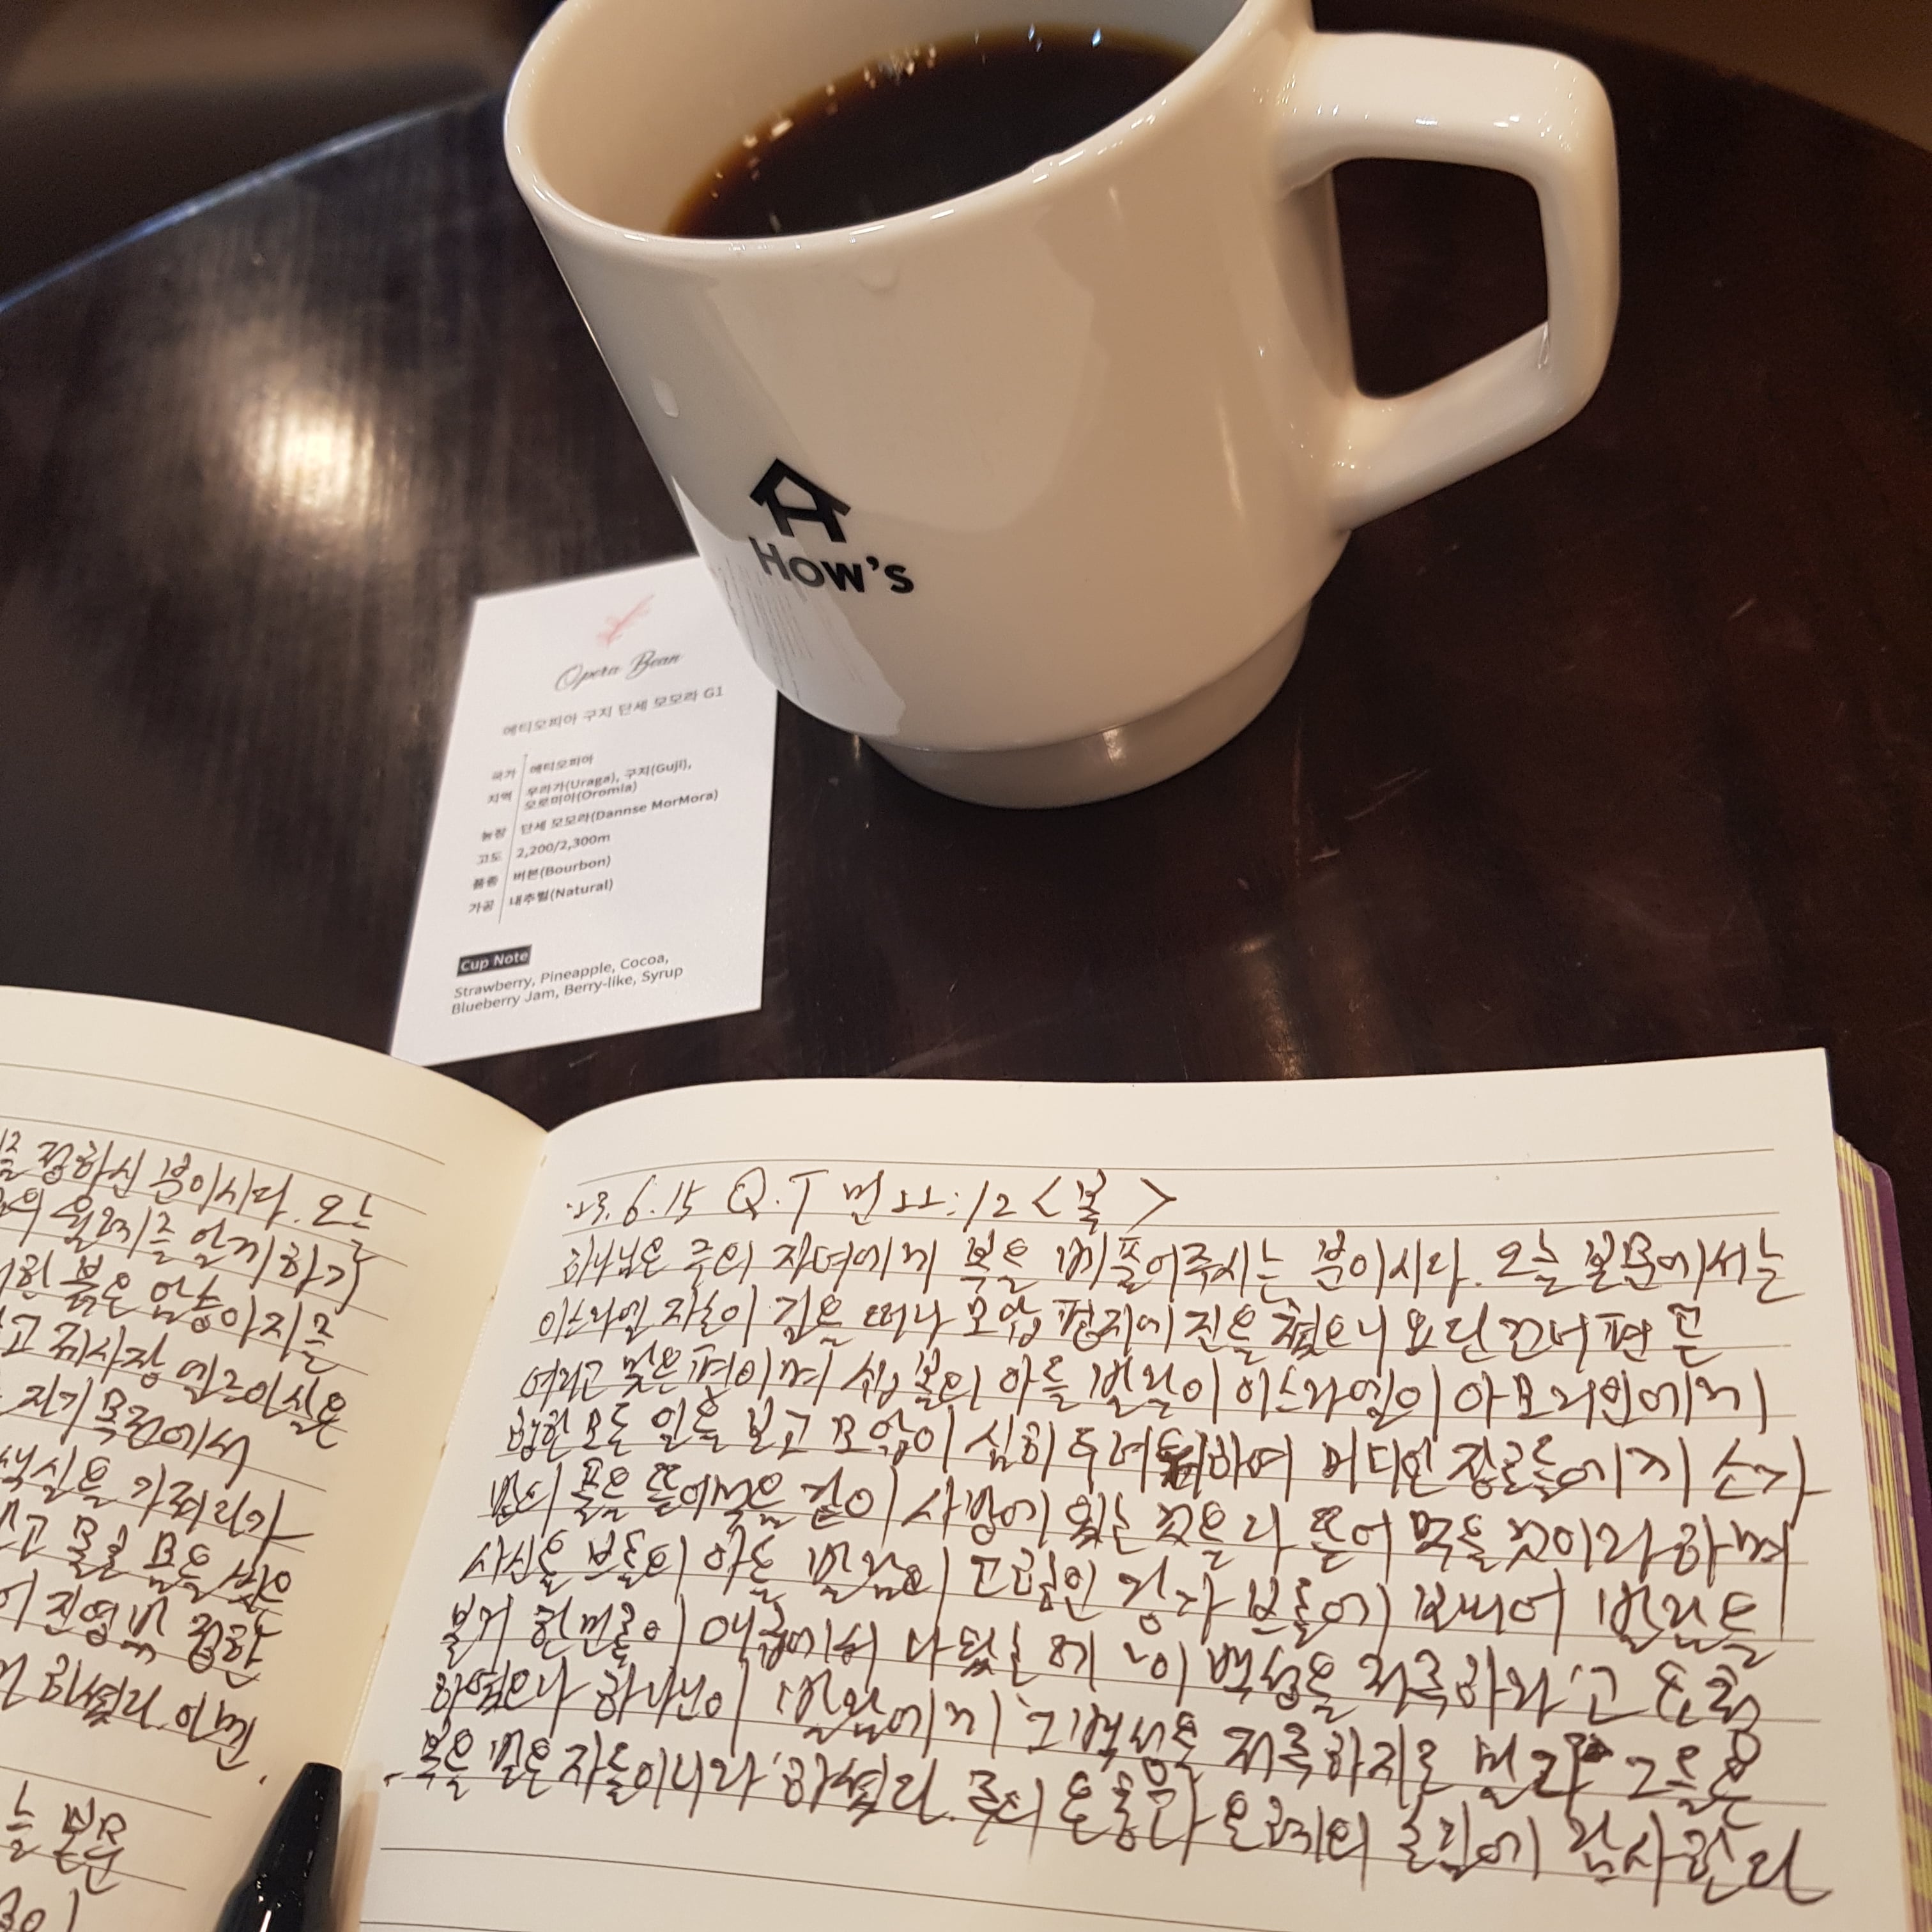 How's
Opera Bean
에티오피아 구지 단세 모모라 G1
국가 에티오피아
지역 우라가(Uraga), 구지(Guji),
오로미아(Oromia)
농장 단세 모모라(Dannse MorMora)
고도 2,200/2,300m
품종 버본(Bourbon)
가공 내추럴(Natural)
Cup Note
Strawberry, Pineapple, Cocoa,
Blueberry Jam, Berry-like, Syrup
정하신 분이시다. 오늘
알게 하기
붉은 암송아지를
제사장 엘르아살은
자기 목전에서
색실을 가져다가
물로 몸을 씻은
진영 밖 정한
하셨다. 이는
늘 본문
'23.6.15 Q.T 민22:12 <복>
하나님은 주의 자녀에게 복을 베풀어주시는 분이시다. 오늘 본문에서는
이스라엘 자손이 길을 떠나 모압 평지에 진을 쳤으니 요단 건너편 곧
여리고 맞은편이며 십볼의 아들 발락이 이스라엘이 아모리인에게
행한 모든 일을 보고 모압이 심히 두려워하여 미디안 장로들에게 소가
밭의 풀을 뜯어먹음 같이 사방에 있는 것을 다 뜯어 먹을 것이라 하며
사신을 브올의 아들 발람의 고향인 강가 브돌에 보내어 발람을
불러 한 민족이 애굽에서 나왔는데 '이 백성을 저주하라'고 요청
하였으나 하나님이 발람에게 '그 백성을 저주하지도 말라 그들은
복을 받은 자들이니라' 하셨다. 주의 은총과 은혜의 손길에 감사한다